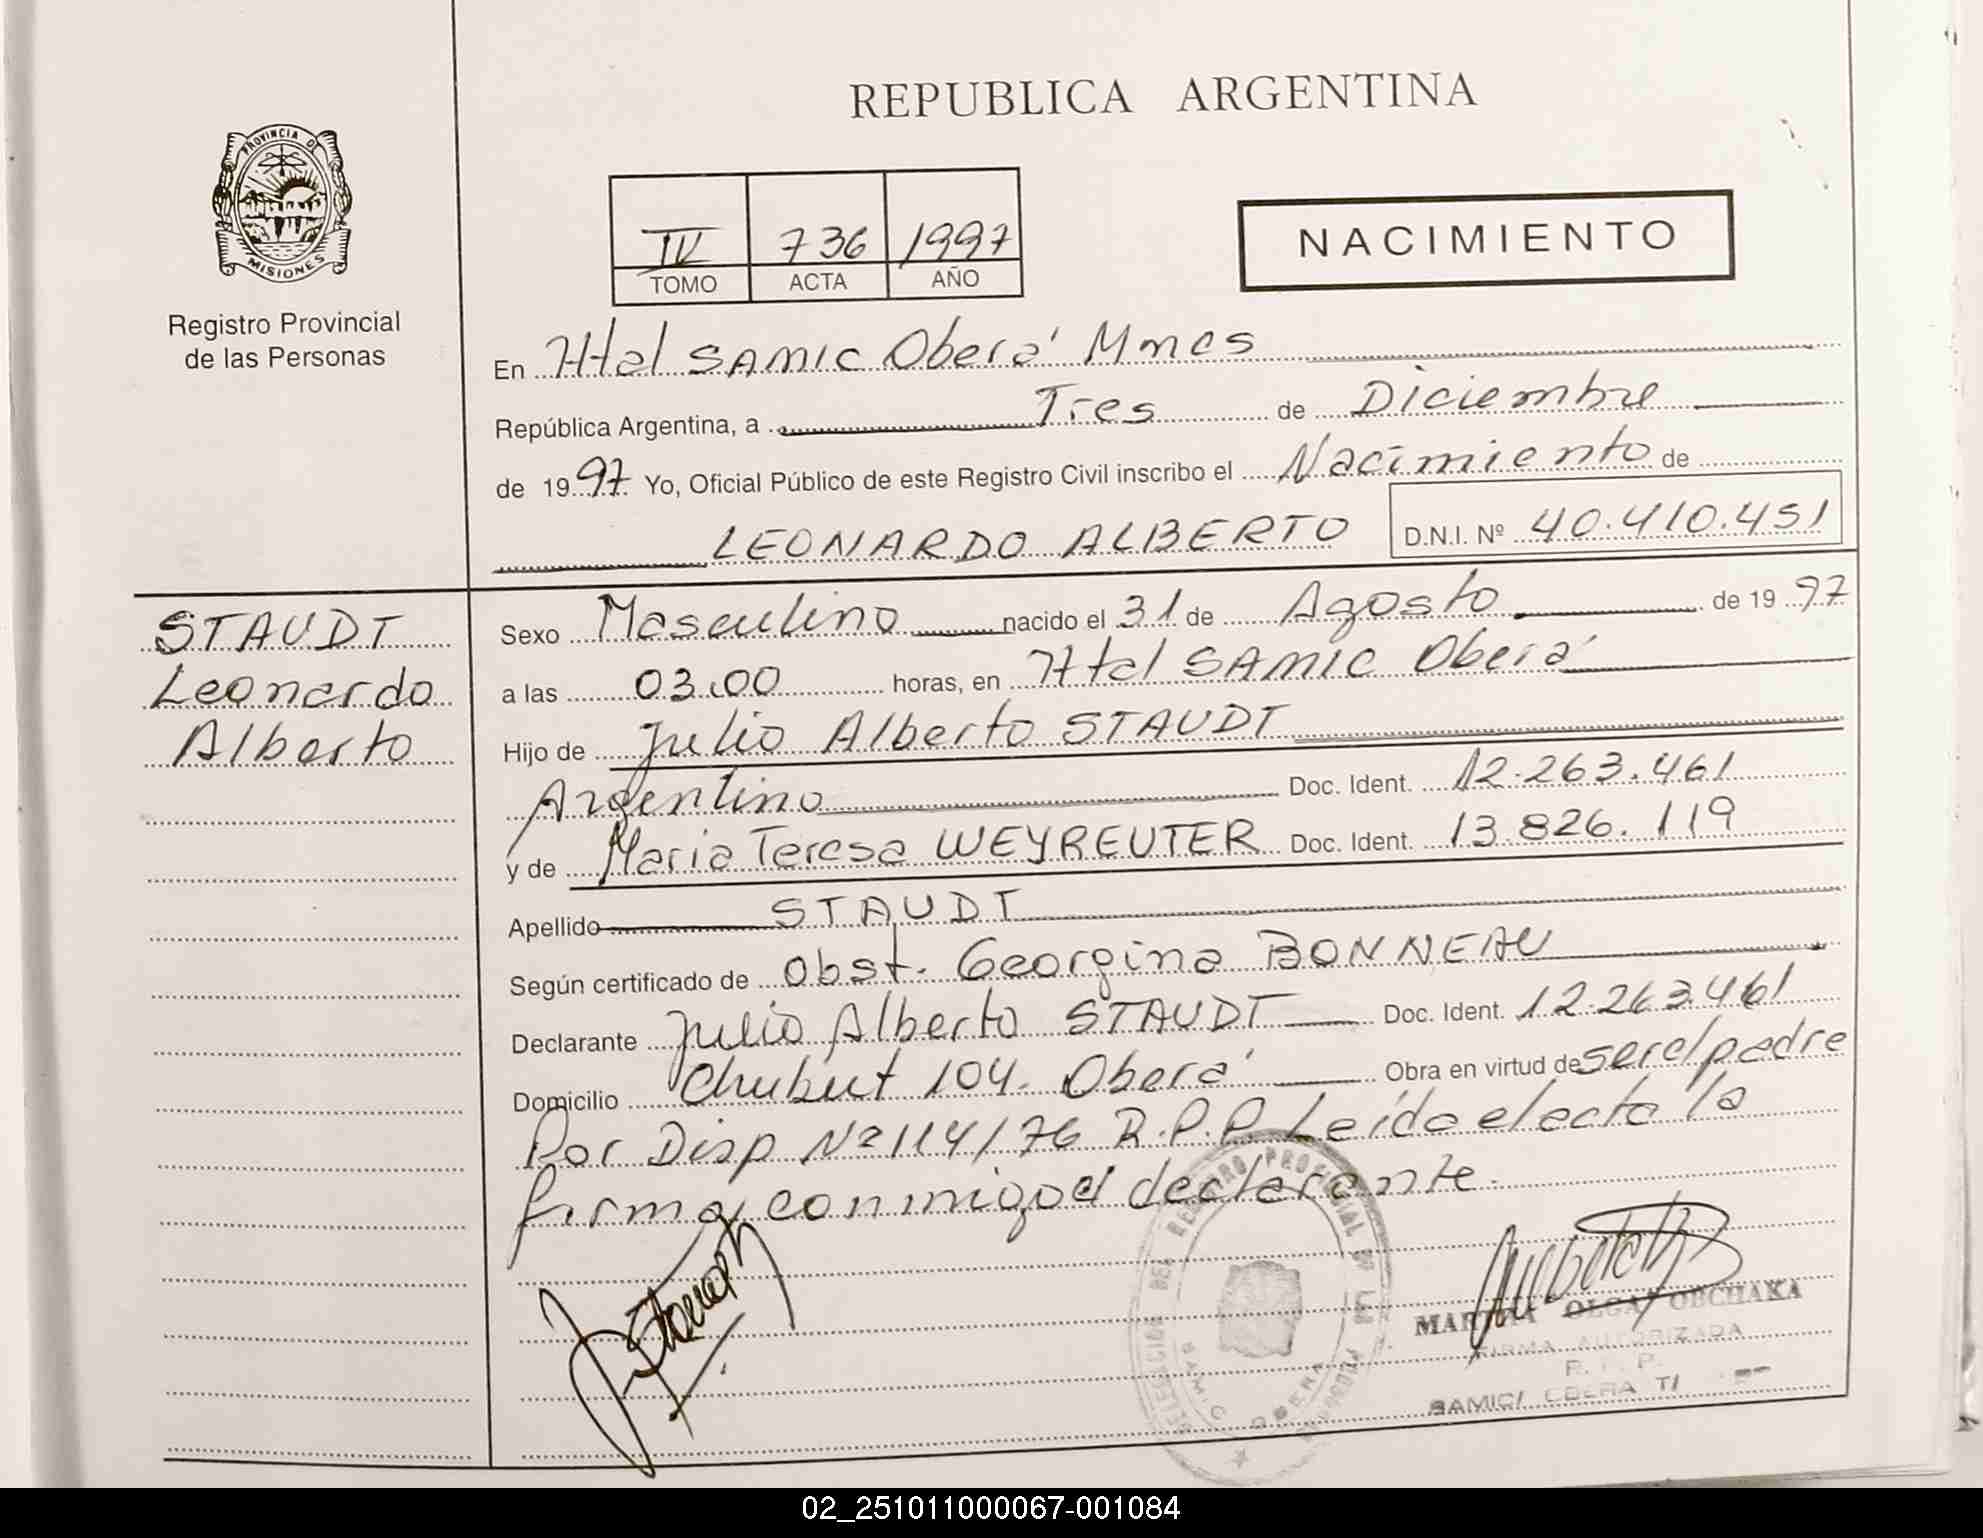 REPUBLICA ARGENTINA
PROVINCIA DE
MISIONES
Registro Provincial
de las Personas
IV 736 1997
TOMO ACTA AÑO
NACIMIENTO
En Htal SAMIC Oberá Mnes
República Argentina, a Tres de Diciembre
de 1997 Yo, Oficial Público de este Registro Civil inscribo el Nacimiento de
LEONARDO ALBERTO D.N.I. Nº 40.410.451
STAUDT
Leonardo
Alberto
Sexo Masculino nacido el 31 de Agosto de 1997
a las 03:00 horas, en Htal SAMIC Oberá
Hijo de Julio Alberto STAUDT
Argentino Doc. Ident. 12.263.461
y de Maria Teresa WEYREUTER Doc. Ident. 13.826.119
Apellido STAUDT
Según certificado de Obst. Georgina BONNEAU
Declarante Julio Alberto STAUDT Doc. Ident. 12.263.461
Domicilio Chubut 104. Oberá Obra en virtud de ser el padre
Por Disp Nº 114/76 R.P.P Leída el acta la
firma conmigo el declarante.
MARTHA OLGA
FIRMA AUTORIZADA
R. P. P.
SAMIC/ OBERA
REGISTRO PROVINCIAL
02_251011000067-001084